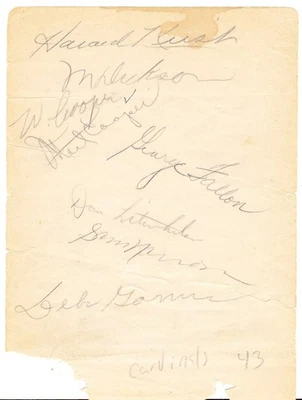 Howard Krist
M Dickson
W. Cooper
Mort Cooper
George Fallon
Dan Litwhiler
Sam Narron
Debs Garms
Cardinals 43